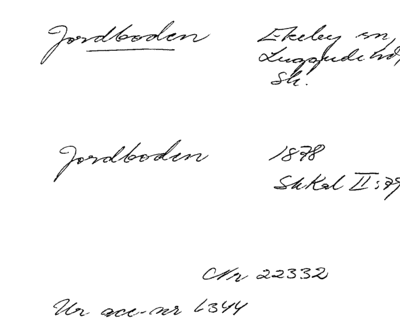 Jordboden Ekeby sn,
Luggude hd,
Sk.
Jordboden 1878
SkKd II:79
Nr 22332
Ur acc-nr 6344